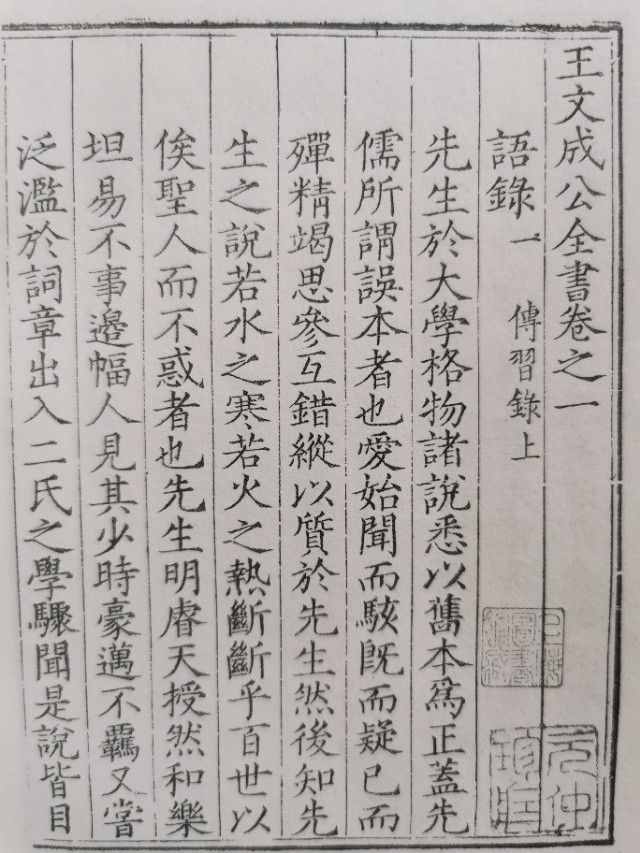 王文成公全書卷之一
語錄一 傳習錄上
先生於大學格物諸說悉以舊本爲正蓋先
儒所謂誤本者也愛始聞而駭既而疑已而
殫精竭思參互錯縱以質於先生然後知先
生之說若水之寒若火之熱斷斷乎百世以
俟聖人而不惑者也先生明睿天授然和樂
坦易不事邊幅人見其少時豪邁不羈又嘗
泛濫於詞章出入二氏之學驟聞是說皆目